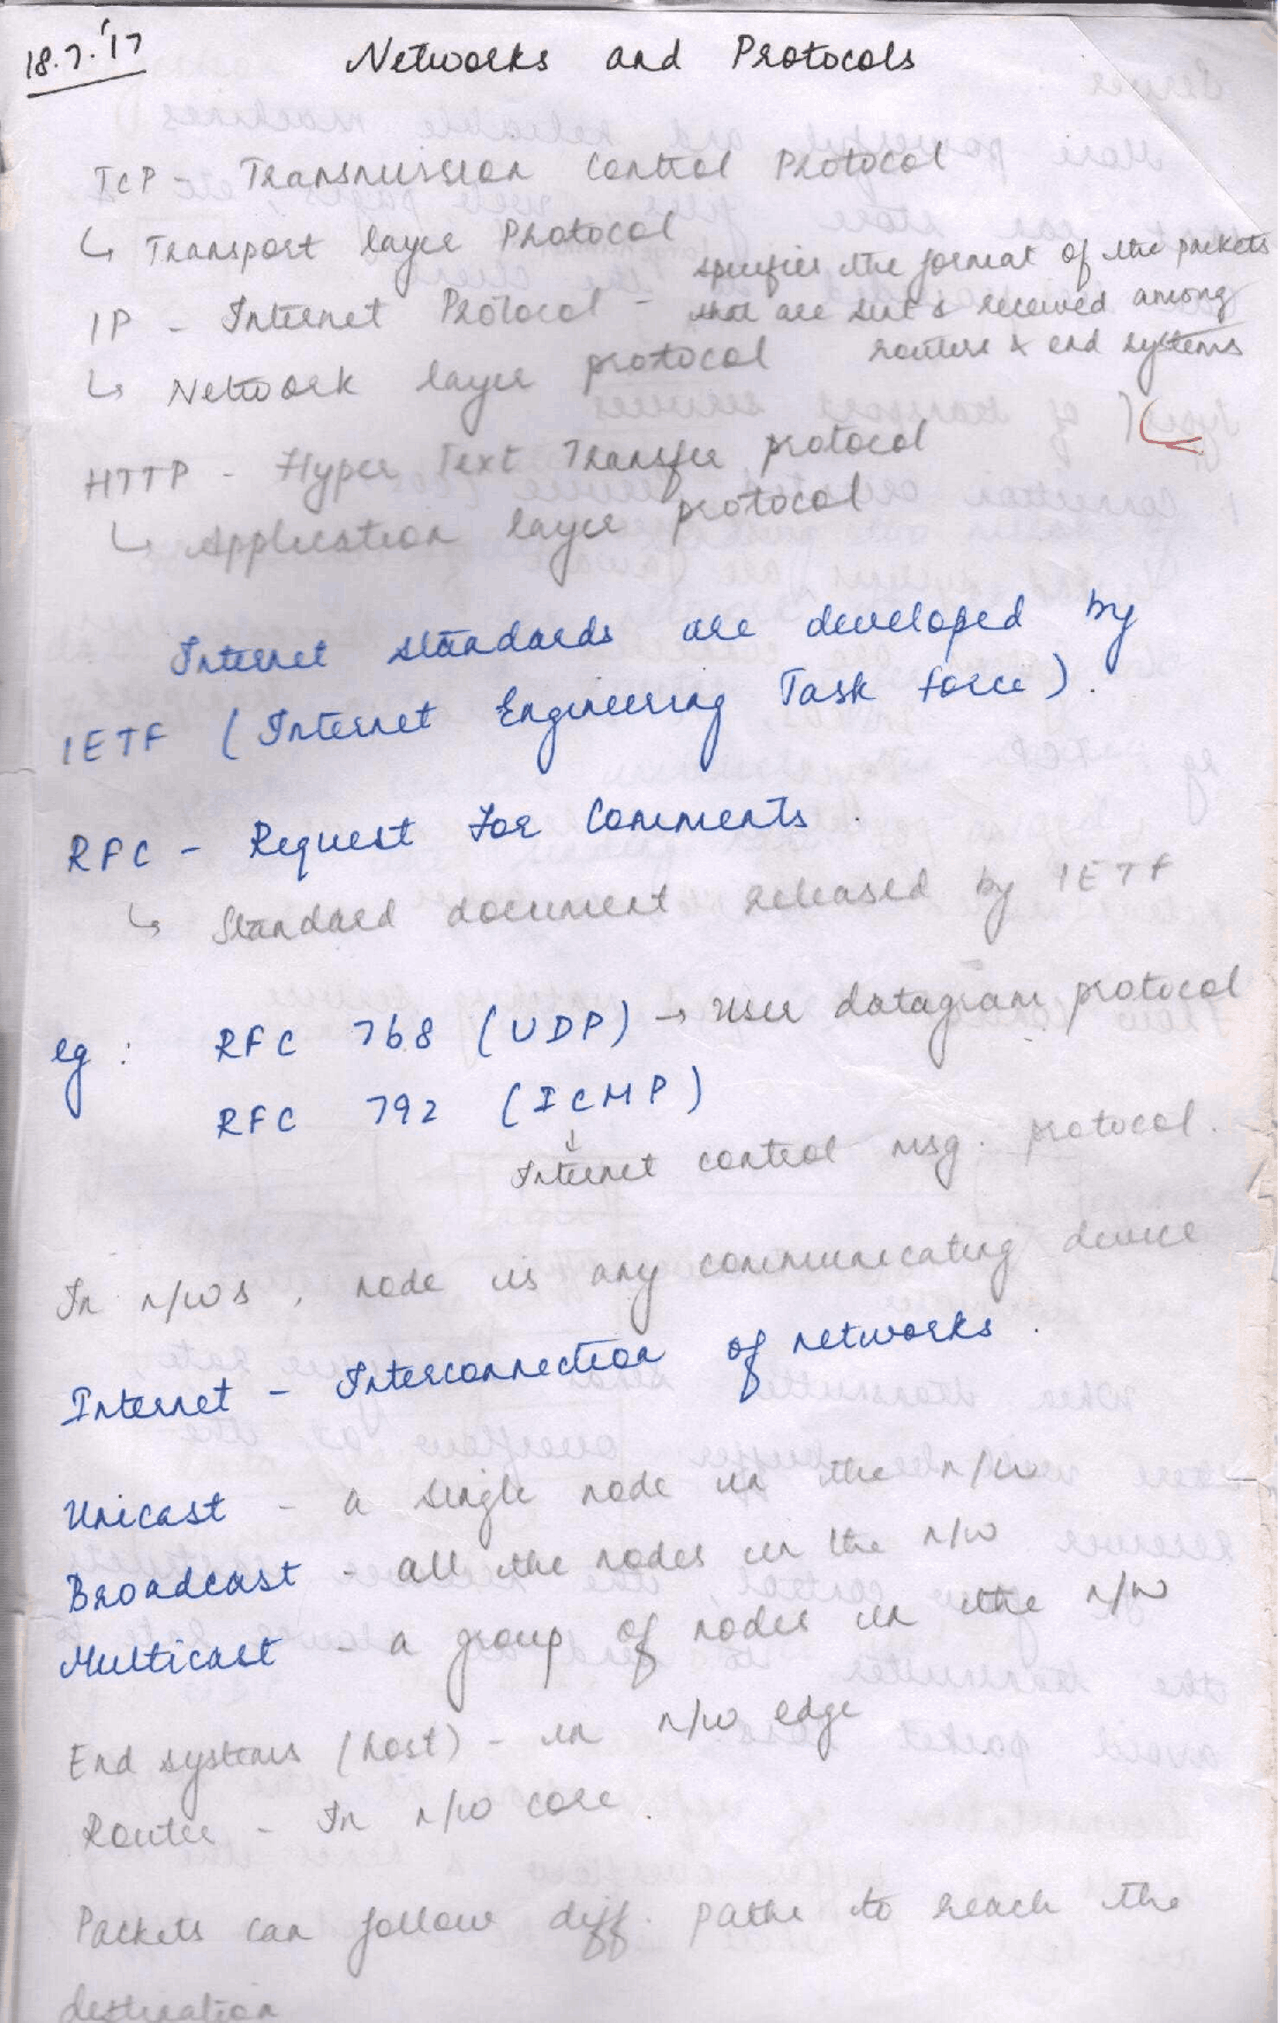 18.7.'17
Networks and Protocols
TCP - Transmission Control Protocol
↳ Transport layer Protocol
IP - Internet Protocol - specifies the format of the packets
that are sent & received among
routers & end systems
↳ Network layer protocol
HTTP - Hyper Text Transfer protocol
↳ Application layer protocol
Internet standards are developed by
IETF (Internet Engineering Task Force).
RFC - Request For Comments.
↳ Standard document released by IETF
eg: RFC 768 (UDP) → User datagram protocol
RFC 792 (ICMP)
↓
Internet control msg. protocol.
In n/ws, node is any communicating device
Internet - Interconnection of networks.
Unicast - a single node in the n/w
Broadcast - all the nodes in the n/w
Multicast - a group of nodes in the n/w
End systems (host) - in n/w edge
Router - In n/w core.
Packets can follow diff. paths to reach the
destination